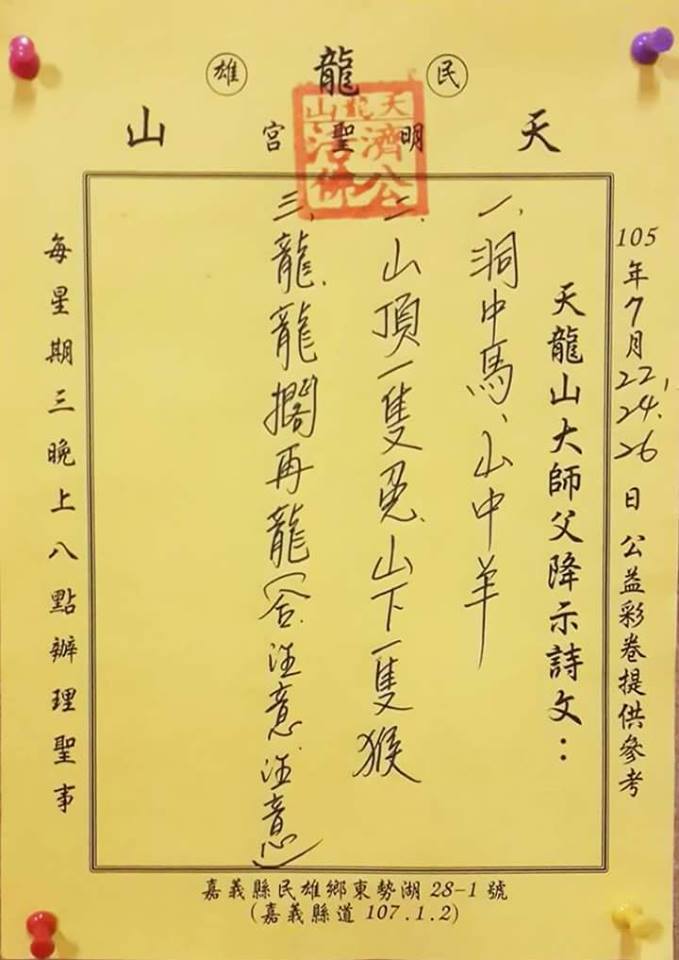 民雄
天龍山
明聖宮
天龍山
濟公
活佛
105年7月22,24.26日公益彩卷提供參考
天龍山大師父降示詩文：
一、洞中馬、山中羊
二、山頂一隻兔、山下一隻猴
三、龍、龍擱再龍(合、注意、注意)
每星期三晚上八點辦理聖事
嘉義縣民雄鄉東勢湖28-1號
(嘉義縣道107.1.2)